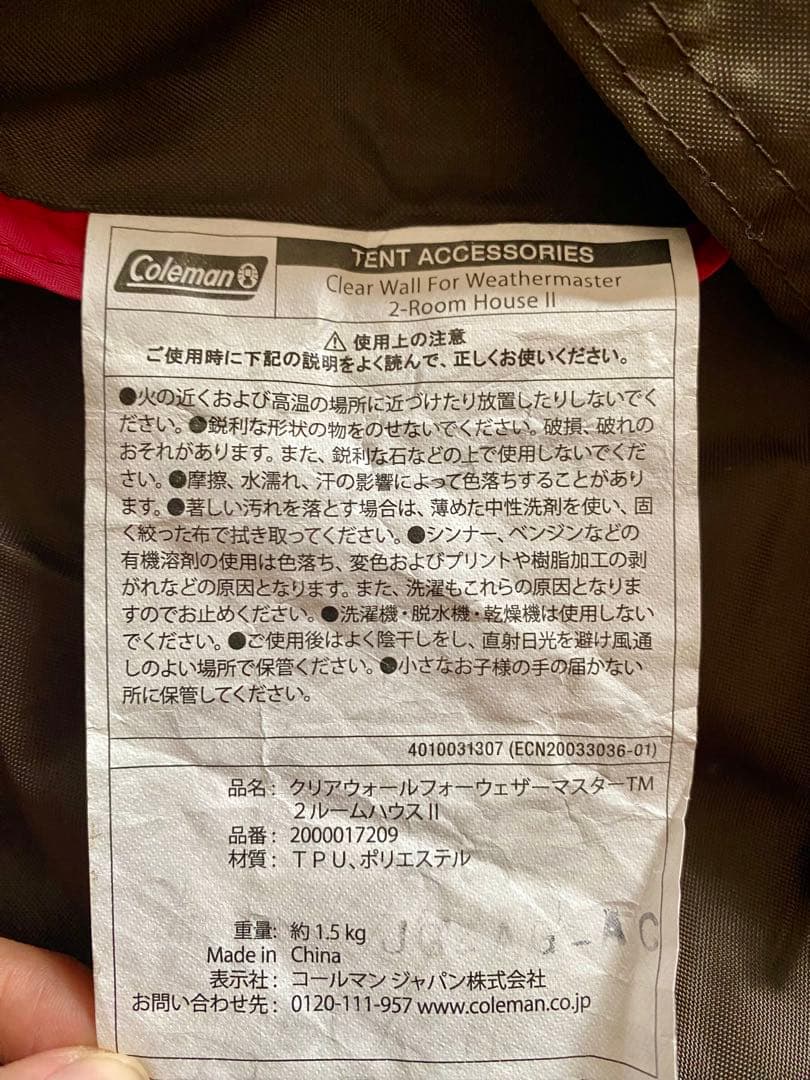 Coleman
TENT ACCESSORIES
Clear Wall For Weathermaster
2-Room House II
⚠ 使用上の注意
ご使用時に下記の説明をよく読んで、正しくお使いください。
●火の近くおよび高温の場所に近づけたり放置したりしないでく
ださい。●鋭利な形状の物をのせないでください。破損、破れの
おそれがあります。また、鋭利な石などの上で使用しないでくだ
さい。●摩擦、水濡れ、汗の影響によって色落ちすることがあり
ます。●著しい汚れを落とす場合は、薄めた中性洗剤を使い、固
く絞った布で拭き取ってください。●シンナー、ベンジンなどの
有機溶剤の使用は色落ち、変色およびプリントや樹脂加工の剥
がれなどの原因となります。また、洗濯もこれらの原因となりま
すのでお止めください。●洗濯機・脱水機・乾燥機は使用しない
でください。●ご使用後はよく陰干しをし、直射日光を避け風通
しのよい場所で保管ください。●小さなお子様の手の届かない
所に保管してください。
4010031307 (ECN20033036-01)
品名: クリアウォールフォーウェザーマスター™
2ルームハウスⅡ
品番: 2000017209
材質: TPU、ポリエステル
重量: 約1.5 kg
Made in China
表示社: コールマン ジャパン株式会社
お問い合わせ先: 0120-111-957 www.coleman.co.jp